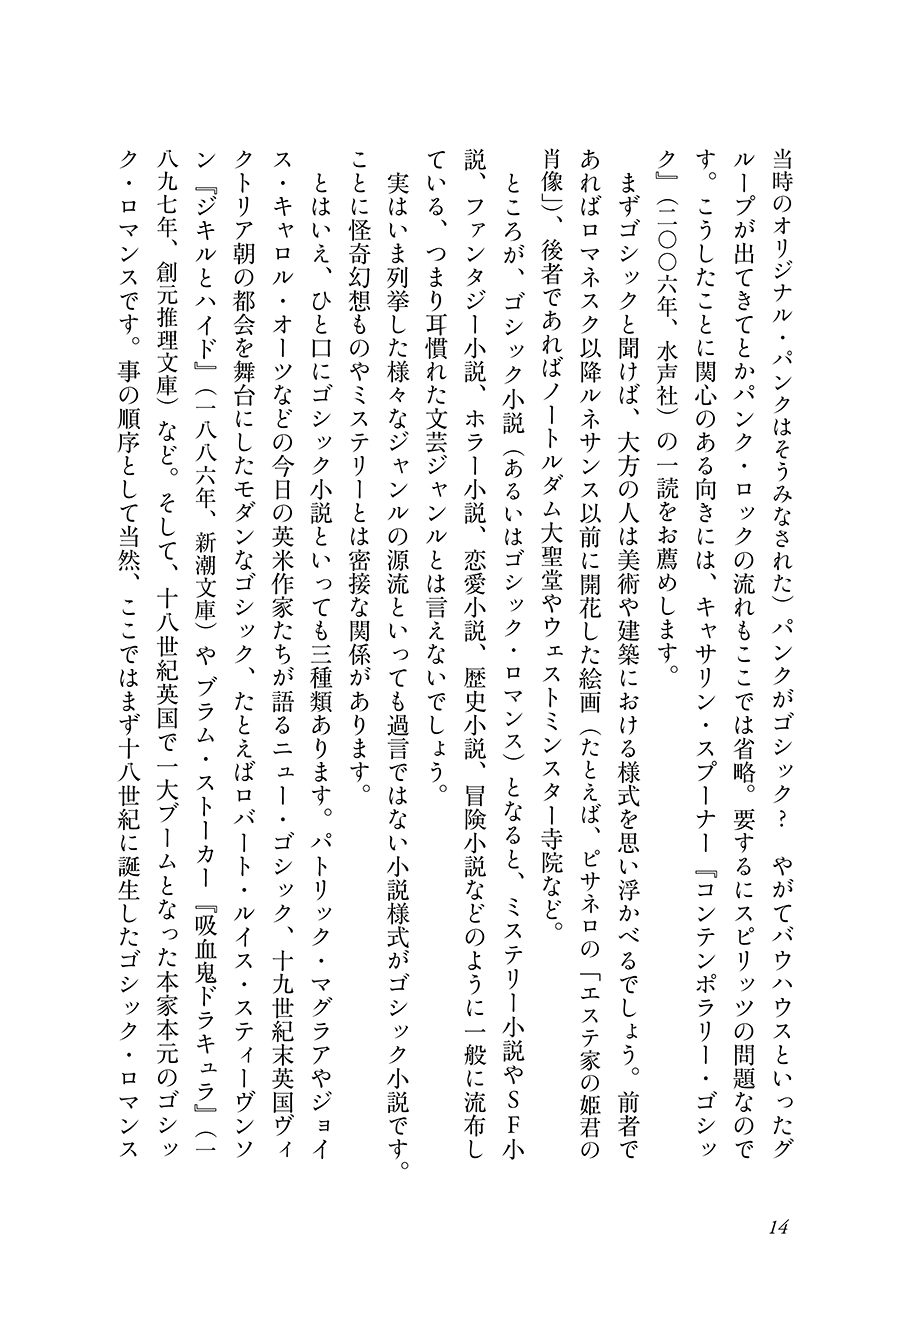 当時のオリジナル・パンクはそうみなされた）パンクがゴシック？　やがてバウハウスといったグ
ループが出てきてとかパンク・ロックの流れもここでは省略。要するにスピリッツの問題なので
す。こうしたことに関心のある向きには、キャサリン・スプーナー『コンテンポラリー・ゴシッ
ク』（二〇〇六年、水声社）の一読をお薦めします。
　まずゴシックと聞けば、大方の人は美術や建築における様式を思い浮かべるでしょう。前者で
あればロマネスク以降ルネサンス以前に開花した絵画（たとえば、ピサネロの「エステ家の姫君の
肖像」）、後者であればノートルダム大聖堂やウェストミンスター寺院など。
　ところが、ゴシック小説（あるいはゴシック・ロマンス）となると、ミステリー小説やSF小
説、ファンタジー小説、ホラー小説、恋愛小説、歴史小説、冒険小説などのように一般に流布し
ている、つまり耳慣れた文芸ジャンルとは言えないでしょう。
　実はいま列挙した様々なジャンルの源流といっても過言ではない小説様式がゴシック小説です。
ことに怪奇幻想ものやミステリーとは密接な関係があります。
　とはいえ、ひと口にゴシック小説といっても三種類あります。パトリック・マグラアやジョイ
ス・キャロル・オーツなどの今日の英米作家たちが語るニュー・ゴシック、十九世紀末英国ヴィ
クトリア朝の都会を舞台にしたモダンなゴシック、たとえばロバート・ルイス・スティーヴンソ
ン『ジキルとハイド』（一八八六年、新潮文庫）やブラム・ストーカー『吸血鬼ドラキュラ』（一
八九七年、創元推理文庫）など。そして、十八世紀英国で一大ブームとなった本家本元のゴシッ
ク・ロマンスです。事の順序として当然、ここではまず十八世紀に誕生したゴシック・ロマンス
14